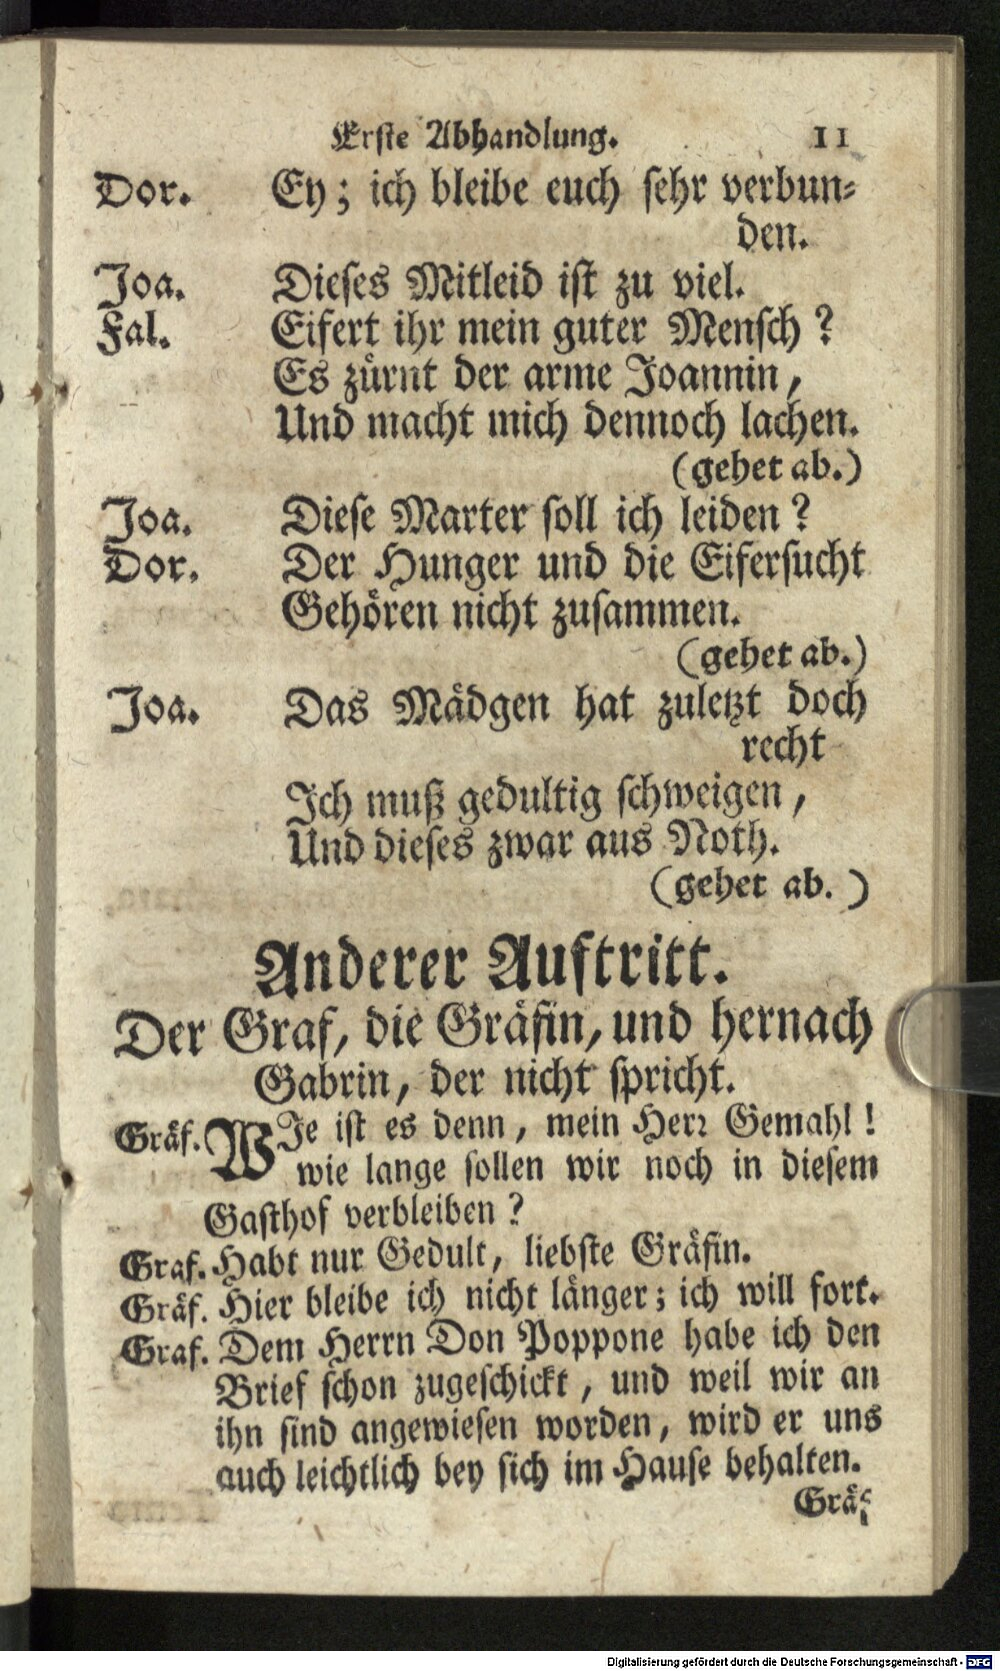 Erste Abhandlung. 11
Dor. Ey; ich bleibe euch sehr verbun-
den.
Joa. Dieses Mitleid ist zu viel.
Fal. Eifert ihr mein guter Mensch?
Es zürnt der arme Joannin,
Und macht mich dennoch lachen.
(gehet ab.)
Joa. Diese Marter soll ich leiden?
Dor. Der Hunger und die Eifersucht
Gehören nicht zusammen.
(gehet ab.)
Joa. Das Mädgen hat zuletzt doch
recht
Ich muß gedultig schweigen,
Und dieses zwar aus Noth.
(gehet ab.)
Anderer Auftritt.
Der Graf, die Gräfin, und hernach
Gabrin, der nicht spricht.
Gräf. WJe ist es denn, mein Herr Gemahl!
wie lange sollen wir noch in diesem
Gasthof verbleiben?
Graf. Habt nur Gedult, liebste Gräfin.
Gräf. Hier bleibe ich nicht länger; ich will fort.
Graf. Dem Herrn Don Poppone habe ich den
Brief schon zugeschickt, und weil wir an
ihn sind angewiesen worden, wird er uns
auch leichtlich bey sich im Hause behalten.
Gräf.
Digitalisierung gefördert durch die Deutsche Forschungsgemeinschaft - DFG